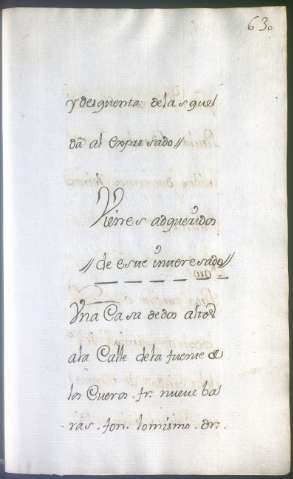 63.
y desquenta de las que l
da al expresado //
Vienes adqueridos
// de este intteresado //
Vna Casa de dos altos
a la Calle de la fuente de
los Cueros. fr. nueve ba
ras. fon. lo mismo.